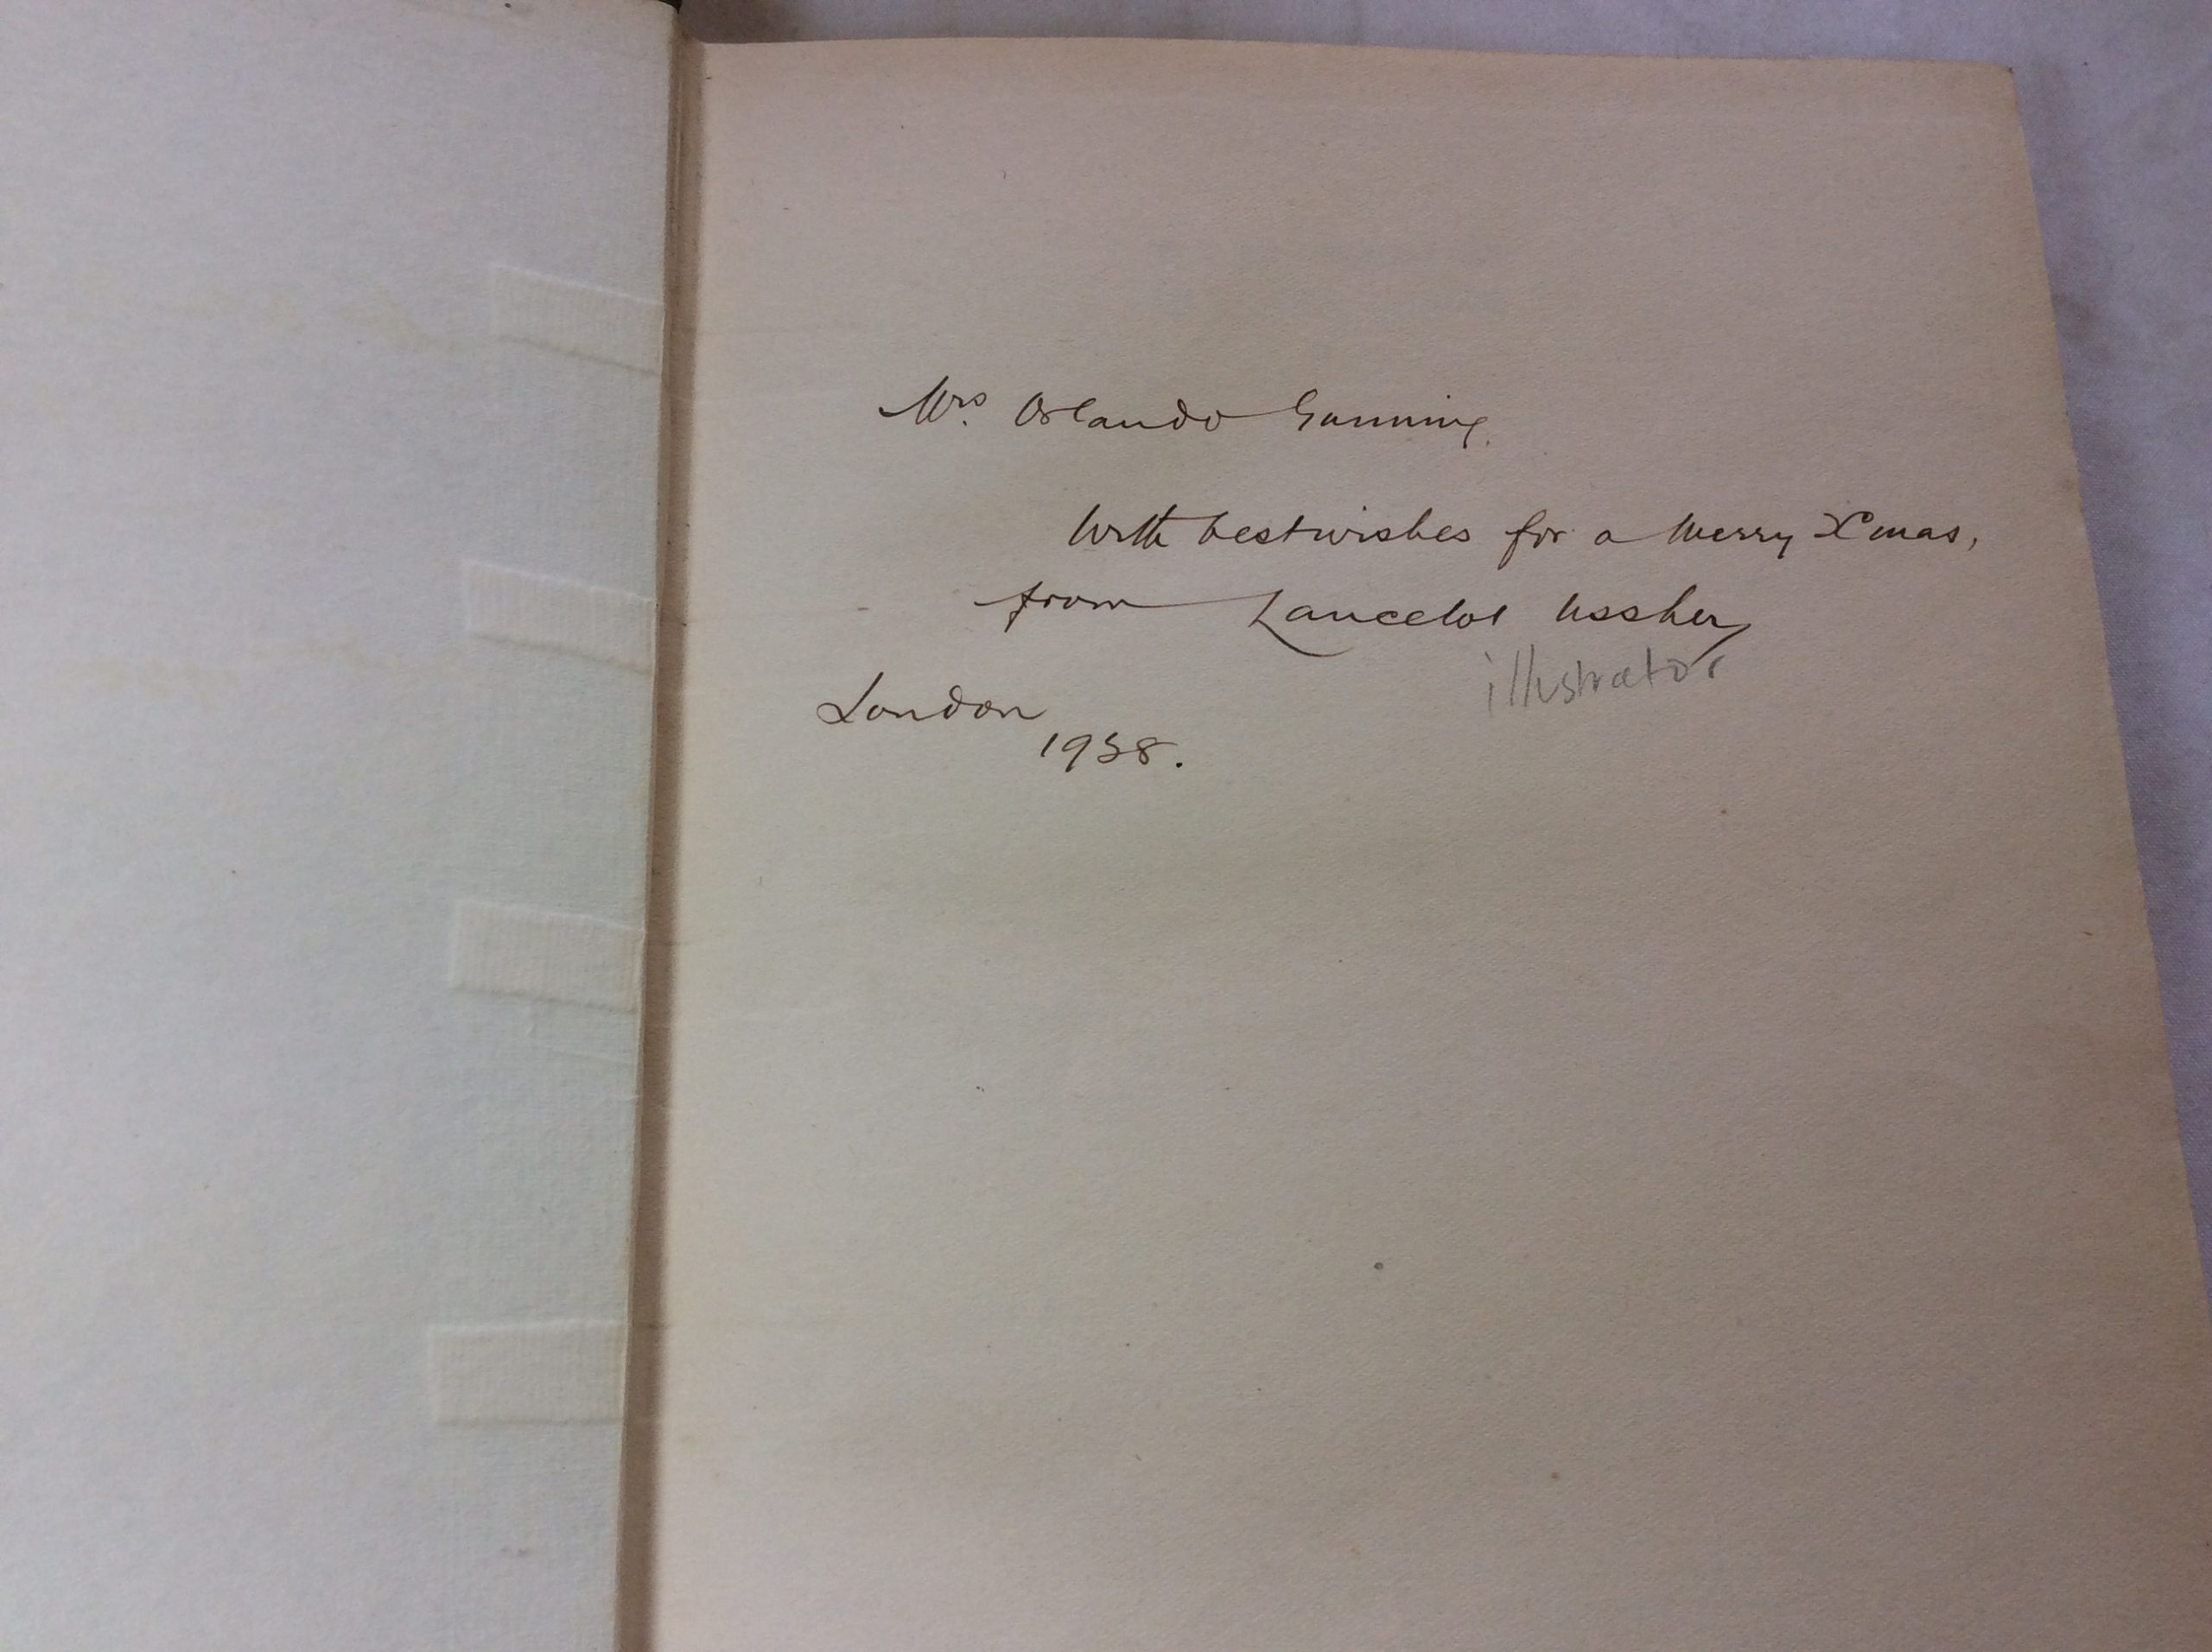 Mrs. Orlando Gunning.
With best wishes for a Merry Xmas,
from Lancelot Ussher
illustrator
London
1938.